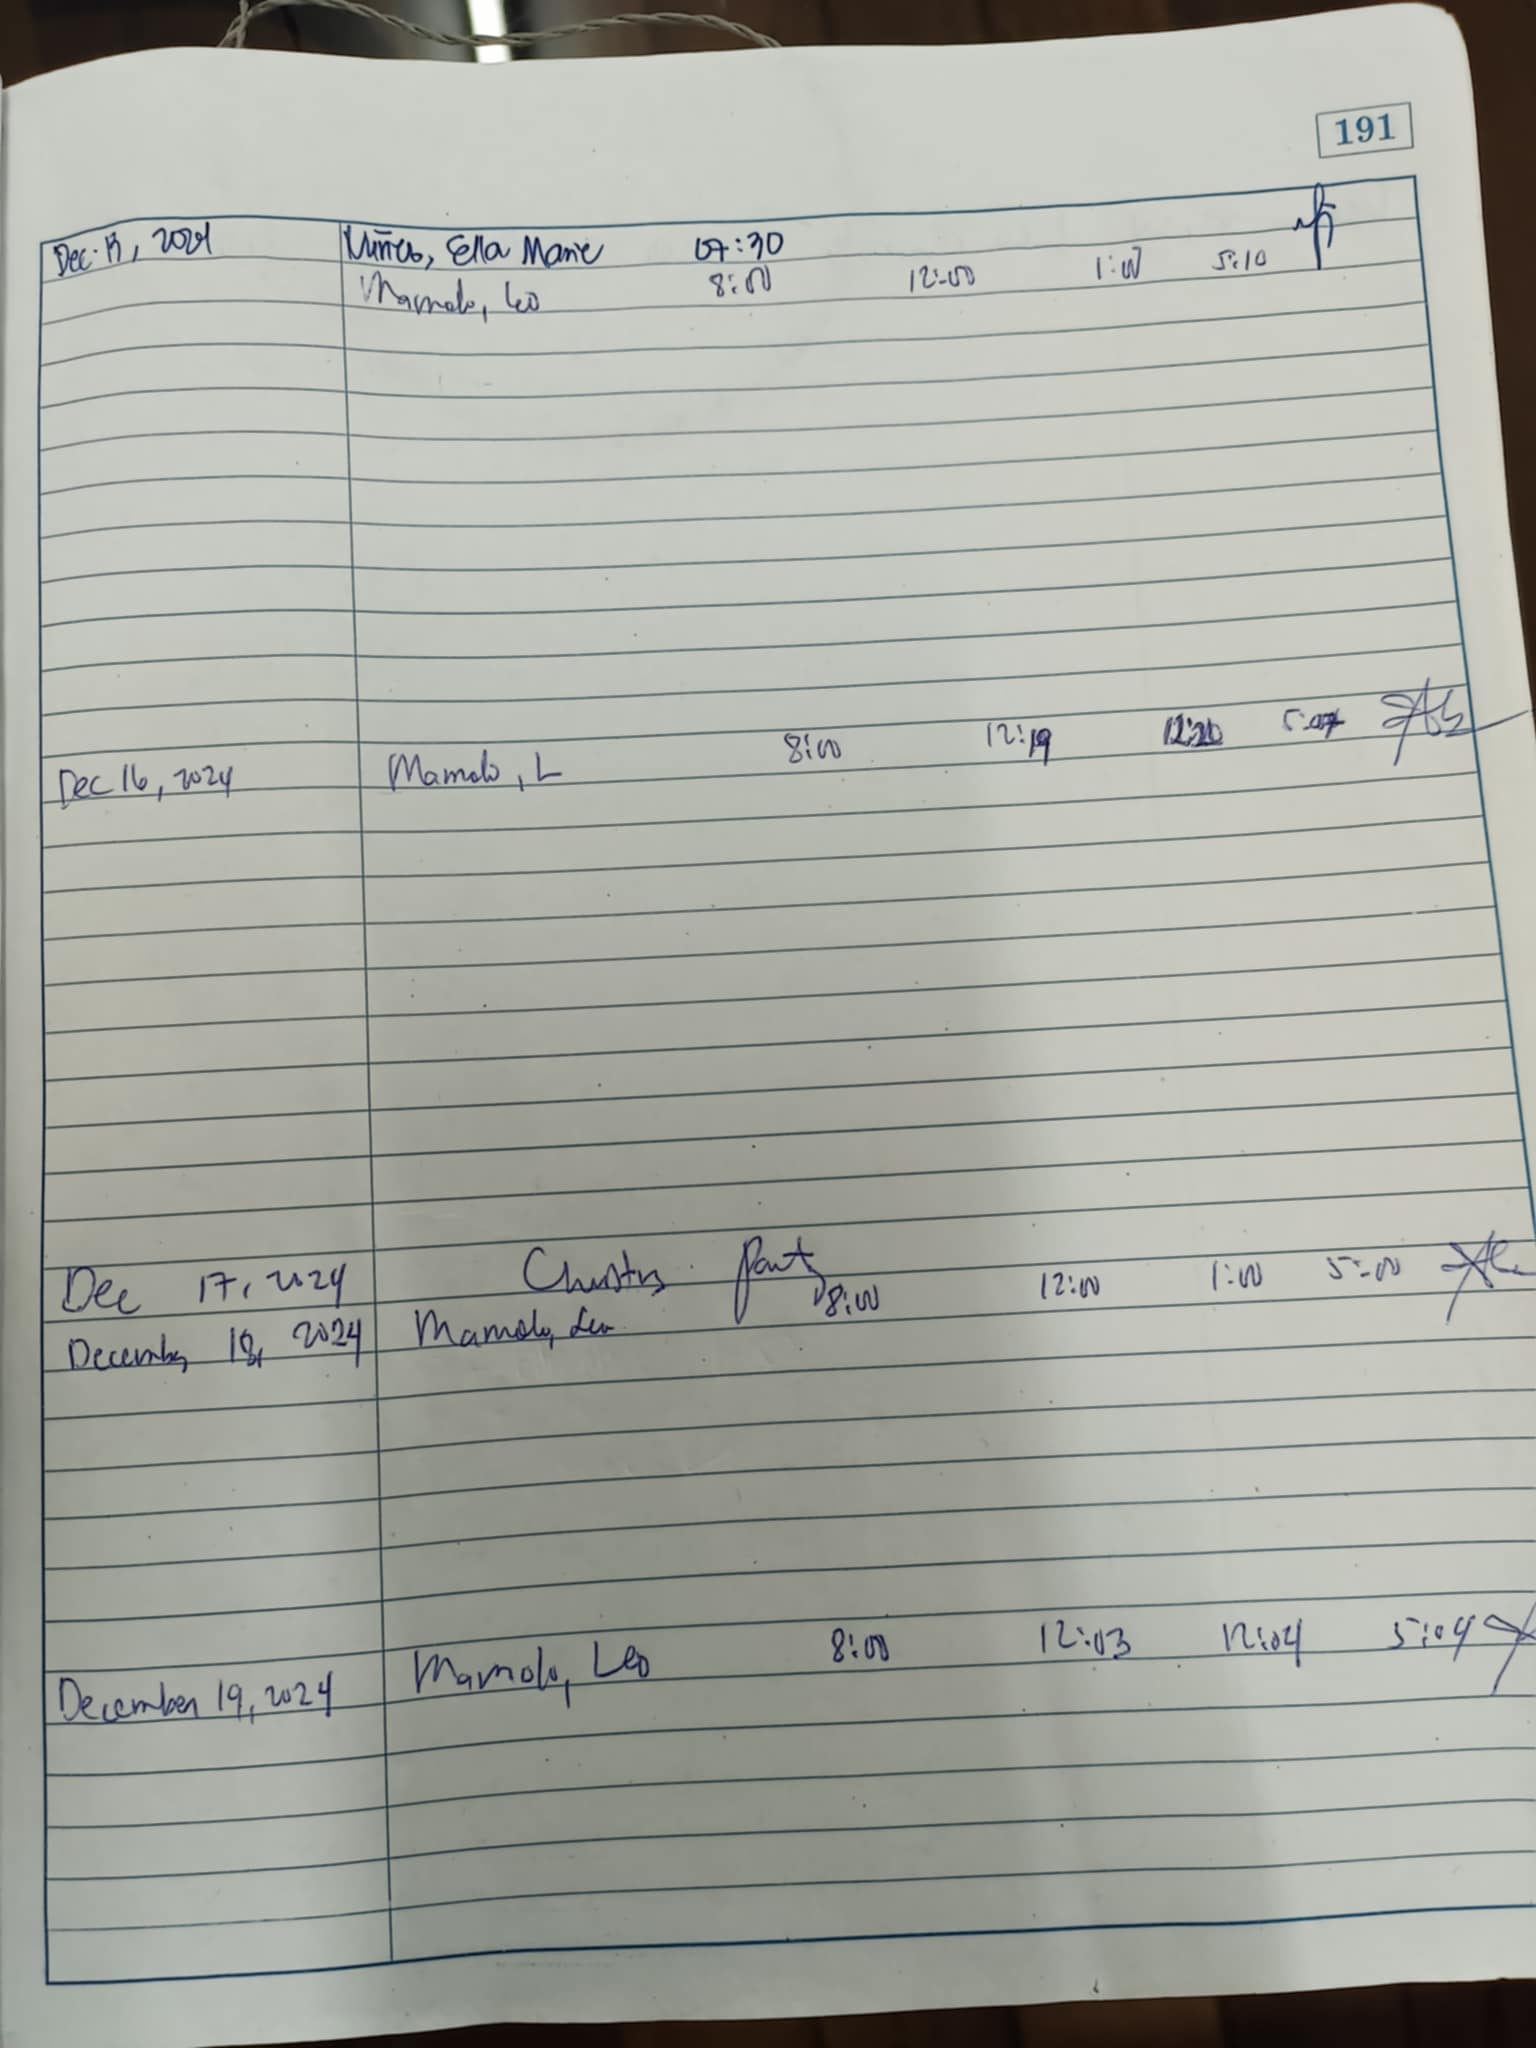 191
Dec. 13, 2024 Ella Marie 07:30
Mamolo, Leo 8:00 12:00 1:00 5:10
Dec 16, 2024 Mamolo, L 8:00 12:19 12:20 5:07
Dec 17, 2024 Christms Party
December 18, 2024 Mamolo, Leo 8:00 12:00 1:00 5:00
December 19, 2024 Mamolo, Leo 8:00 12:03 12:04 5:04